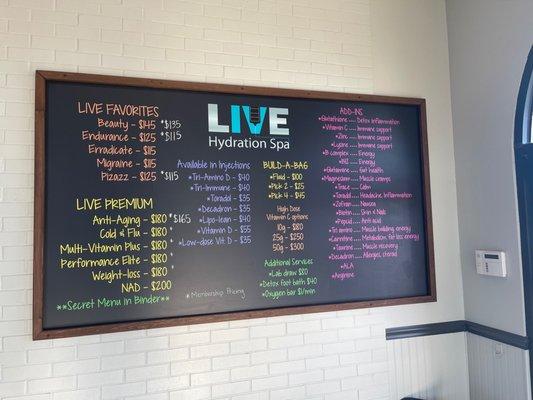 LIVE
Hydration Spa
LIVE FAVORITES
Beauty - $145 *$135
Endurance - $125 *$115
Erradicate - $115
Migraine - $115
Pizazz - $125 *$115
LIVE PREMIUM
Anti-Aging - $180 *$165
Cold & Flu - $180 *
Multi-Vitamin Plus - $180 *
Performance Elite - $180 *
Weight-loss - $180 *
NAD - $200
**Secret Menu in Binder**
Available in Injections
*Tri-Amino D - $40
*Tri-Immune - $40
*Toradol - $35
*Decadron - $35
*Lipo-lean - $40
*Vitamin D - $55
*Low-dose Vit. D - $35
*Membership Pricing
BUILD-A-BAG
*Fluid - $100
*Pick 2 - $25
*Pick 4 - $45
High Dose
Vitamin C options
10g - $80
25g - $250
50g - $300
Additional Services
*Lab draw $80
*Detox foot bath $40
*Oxygen bar $1/min
ADD-INS
*Glutathione..... Detox Inflammation
*Vitamin C..... Immune support
*Zinc..... Immune support
*Lysine..... Immune support
*B complex..... Energy
*B12..... Energy
*Glutamine..... Gut health
*Magnesium..... Muscle cramps
*Trace..... Calm
*Toradol..... Headache Inflammation
*Zofran..... Nausea
*Biotin..... Skin & Nails
*Pepcid..... Anti acid
*Tri amino..... Muscle building, energy
*Carnitine..... Metabolism, fat loss, energy
*Taurine..... Muscle recovery
*Decadron..... Allergies, steroid
*ALA
*Arginine